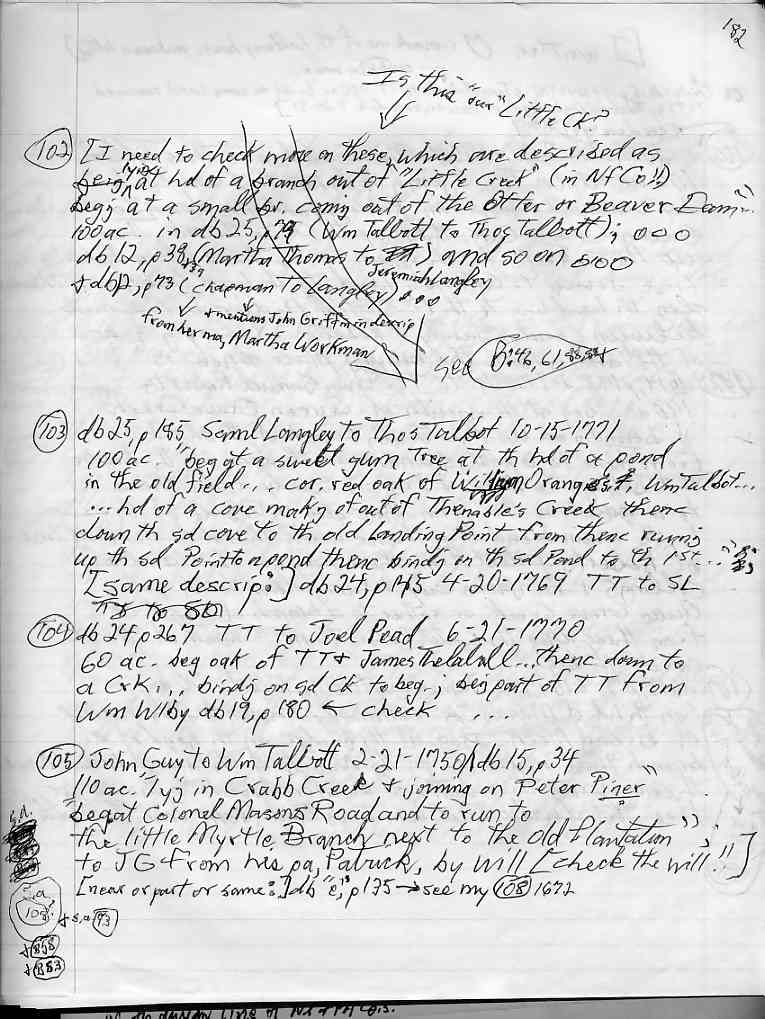 182
Is this "our" "Little Ck?"
102 [I need to check more on these, which are described as
lying at hd of a branch out of "Little Creek" (in Nf Co!!)
beg; at a small br. comg out of the Otter or Beaver Dam"
100 ac. in db 25, p 79 (Wm Talbott to Thos Talbott); ooo
db 12, p 39, (Martha Thomas to ) and so on ooo
Jeremiah Langley
+ db 12, p 73 (Chapman to Langley) ooo
from her ma, Martha Workman
+ mentions John Griffin in descrip
see B: 46, 61, 88,
103 db 25, p 185 Saml Langley to Thos Talbot 10-15-1771
100 ac. "beg at a sweet gum tree at th hd of a pond
in the old field... cor. red oak of William Orange Wm Talbot...
... hd of a cove makg of out of Thenable's Creek thenc
down th sd cove to th old Landing Point from thenc runng
up th sd Point to a pond thenc bindg on th sd Pond to th 1st..."
[same descrip:] db 24, p 145 4-20-1769 TT to SL
104 db 24 p 267 TT to Joel Pead 6-21-1770
60 ac. beg oak of TT + James Thelaball... thenc down to
a Crk... bindg on sd Ck to beg.; beig part of TT from
Wm Wlby db 19, p 180 ← check ...
105 John Guy to Wm Talbott 2-21-1750/1 db 15, p 34
110 ac. "lyg in Crabb Creek + joining on Peter Piner"
"beg at Colonel Masons Road and to run to
the little Myrtle Branch next to the old Plantation";
to JG from his pa, Patrick, by will [check the will!!]
[near or part or same:] db "e", p 175 → see my 108 1672
s.a.
108
+ s.a. 93
+ 858
+ 883